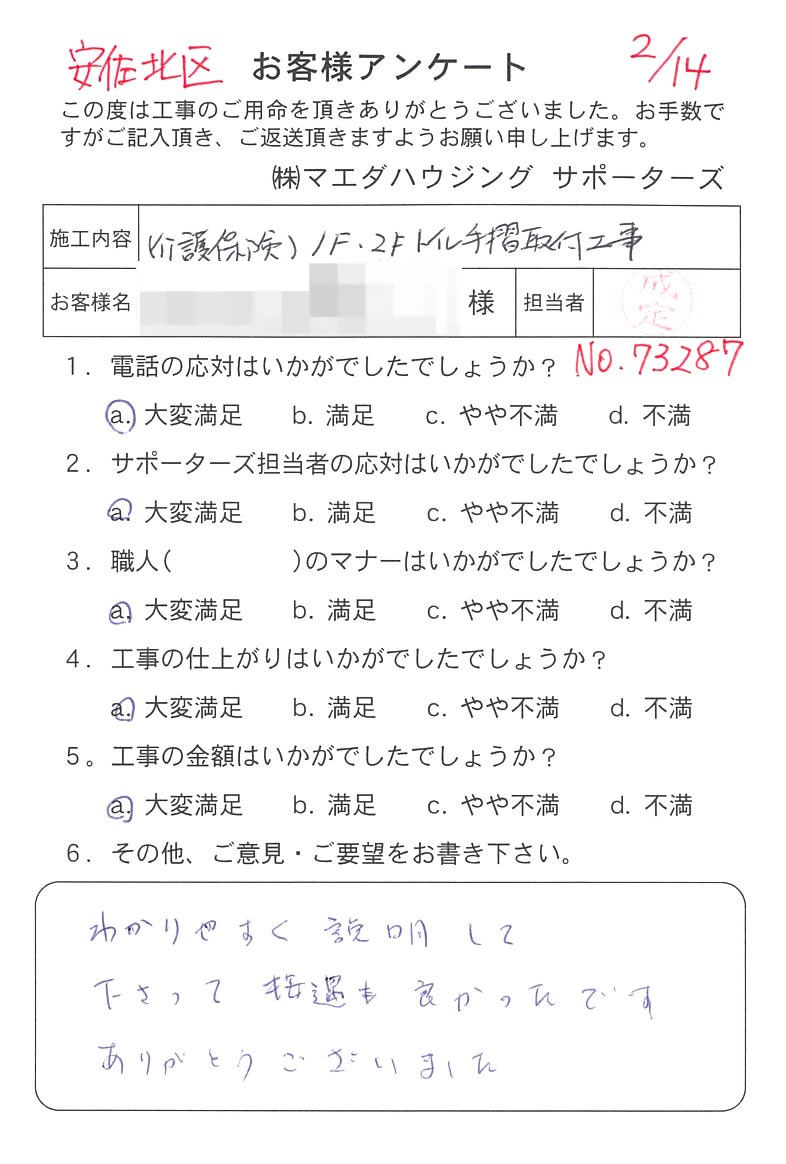 安佐北区 お客様アンケート 2/14
この度は工事のご用命を頂きありがとうございました。お手数で
すがご記入頂き、ご返送頂きますようお願い申し上げます。
㈱マエダハウジング サポーターズ
施工内容 (介護保険) 1F・2Fトイレ手摺取付工事
お客様名 様 担当者
No.73287
1. 電話の応対はいかがでしたでしょうか？
a. 大変満足 b. 満足 c. やや不満 d. 不満
2. サポーターズ担当者の応対はいかがでしたでしょうか？
a. 大変満足 b. 満足 c. やや不満 d. 不満
3. 職人( )のマナーはいかがでしたでしょうか？
a. 大変満足 b. 満足 c. やや不満 d. 不満
4. 工事の仕上がりはいかがでしたでしょうか？
a. 大変満足 b. 満足 c. やや不満 d. 不満
5。工事の金額はいかがでしたでしょうか？
a. 大変満足 b. 満足 c. やや不満 d. 不満
6. その他、ご意見・ご要望をお書き下さい。
わかりやすく 説明して
下さって 接遇も 良かったです
ありがとうございました